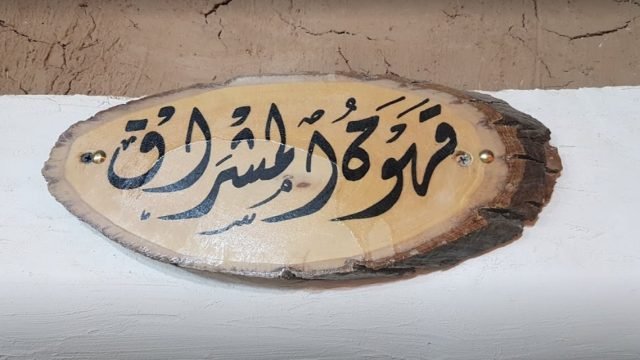 قهوة المشراق